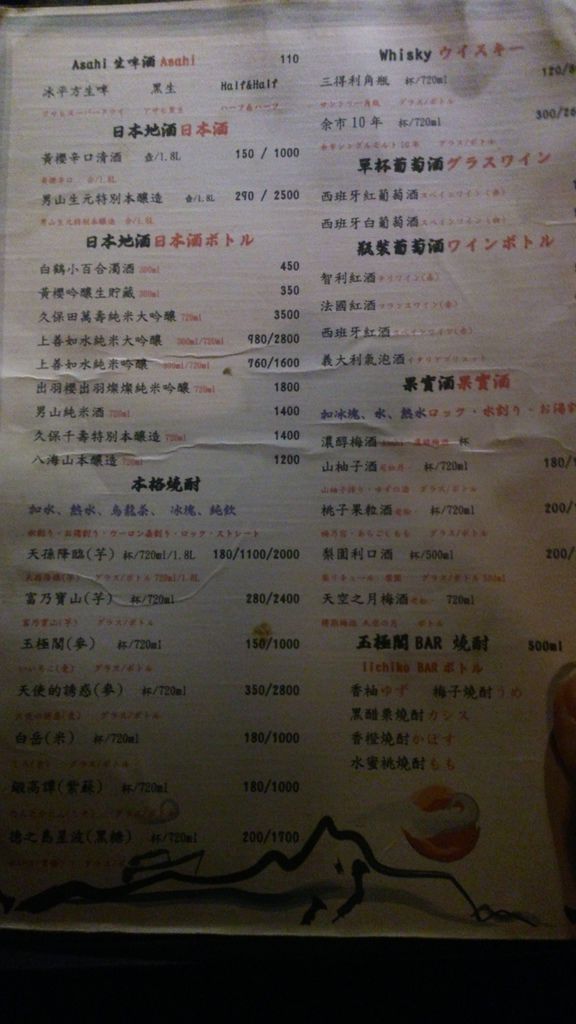 Asahi 生啤酒 Asahi 110
冰平方生啤 黑生 Half&Half
ハーフ&ハーフ
日本地酒日本酒
黃櫻辛口清酒 壺/1.8L 150 / 1000
男山生元特別本釀造 壺/1.8L 290 / 2500
日本地酒日本酒ボトル
白鶴小百合濁酒 300ml 450
黃櫻吟釀生貯藏 300ml 350
久保田萬壽純米大吟釀 720ml 3500
上善如水純米大吟釀 300ml/720ml 980/2800
上善如水純米吟釀 300ml/720ml 760/1600
出羽櫻出羽燦燦純米吟釀 720ml 1800
男山純米酒 720ml 1400
久保千壽特別本釀造 720ml 1400
八海山本釀造 720ml 1200
本格燒酎
加水、熱水、烏龍茶、冰塊、純飲
水割り・お湯割り・ウーロン茶割り・ロック・ストレート
天孫降臨(芋) 杯/720ml/1.8L 180/1100/2000
天孫降臨(芋) グラス/ボトル 720ml/1.8L
富乃寶山(芋) 杯/720ml 280/2400
富乃寶山(芋) グラス/ボトル
玉極閣(麥) 杯/720ml 150/1000
いいちこ(麦) グラス/ボトル
天使的誘惑(麥) 杯/720ml 350/2800
天使の誘惑(麦) グラス/ボトル
白岳(米) 杯/720ml 180/1000
グラス/ボトル
鍛高譚(紫蘇) 杯/720ml 180/1000
グラス/ボトル
德之島星波(黑糖) 杯/720ml 200/1700
Whisky ウイスキー
三得利角瓶 杯/720ml 120/8
サントリー角瓶 グラス/ボトル
余市10年 杯/720ml 300/26
余市シングルモルト10年 グラス/ボトル
單杯葡萄酒グラスワイン
西班牙紅葡萄酒スペインワイン(赤)
西班牙白葡萄酒スペインワイン(白)
瓶裝葡萄酒ワインボトル
智利紅酒チリワイン(赤)
法國紅酒フランスワイン(赤)
西班牙紅酒スペインワイン(赤)
義大利氣泡酒イタリア
果實酒果實酒
加冰塊、水、熱水ロック・水割り・お湯割
濃醇梅酒 杯
山柚子酒 杯/720ml 180/1
グラス/ボトル
桃子果粒酒 杯/720ml 200/
グラス/ボトル
梨園利口酒 杯/500ml 200/
梨リキュール グラス/ボトル 500ml
天空之月梅酒 720ml
ボトル
玉極閣 BAR 燒酎 500ml
iichiko BAR ボトル
香柚ゆず 梅子燒酎うめ
黑醋栗燒酎カシス
香橙燒酎かぼす
水蜜桃燒酎もも